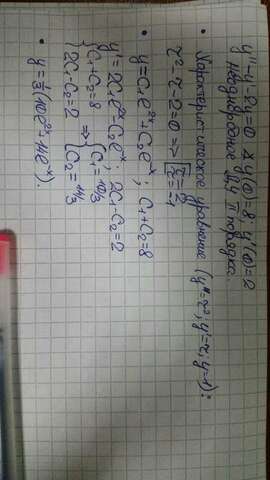 y''-y'-2y=0 & y(0)=8, y'(0)=2
Неоднородное ДУ II порядка.
• Характеристическое уравнение (y''=z²; y'=z; y=1):
z²-z-2=0 => [z=2 z=-1
• y=C₁e²ˣ+C₂e⁻ˣ; C₁+C₂=8
y'=2C₁e²ˣ-C₂e⁻ˣ; 2C₁-C₂=2
{C₁+C₂=8 => {C₁=10/3
{2C₁-C₂=2 {C₂=14/3
• y=1/3(10e²ˣ+14e⁻ˣ).